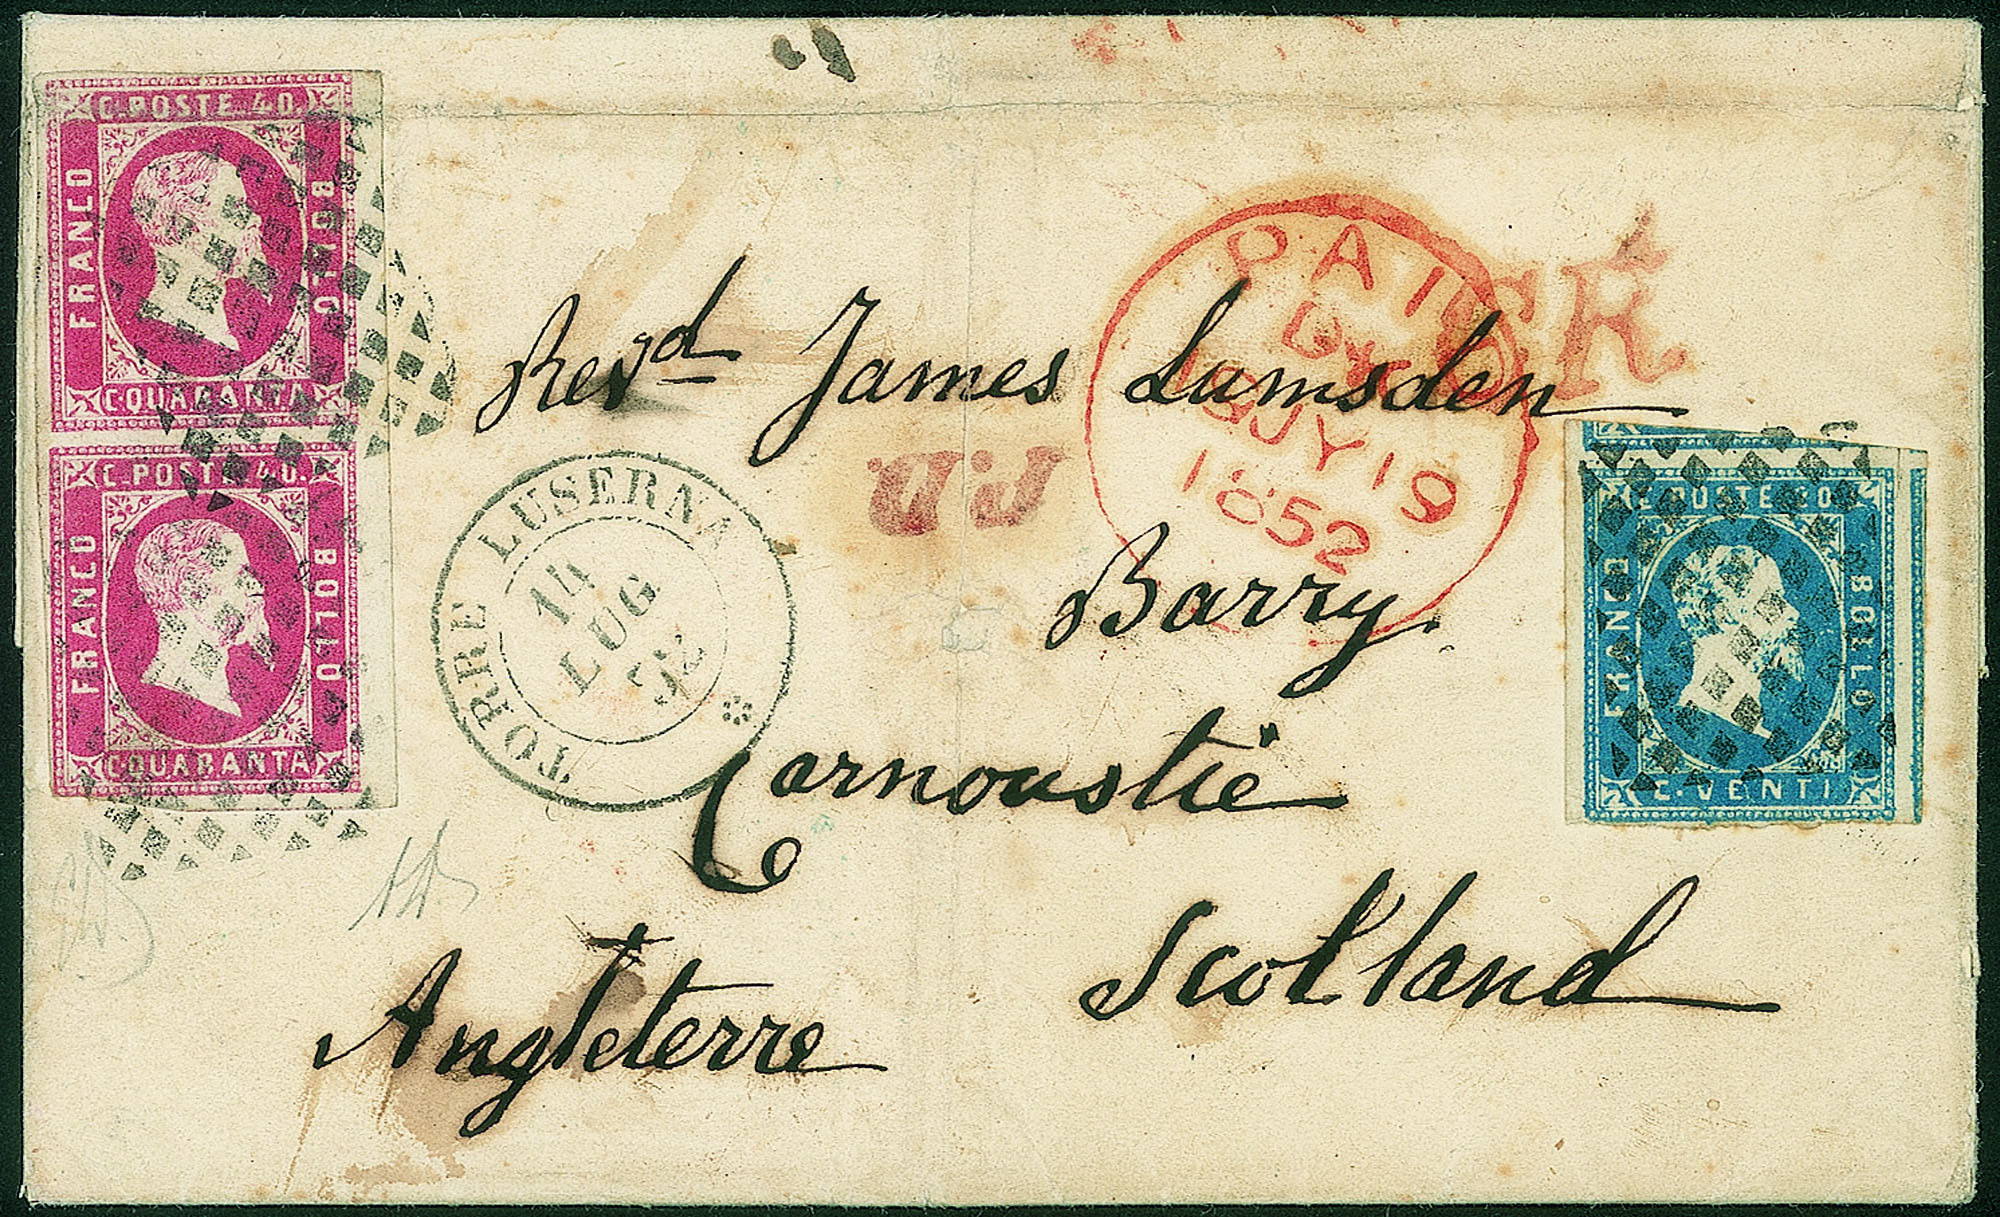 C. POSTE 40.
FRANCO
BOLLO
C. QUARANTA
C. POSTE 40.
FRANCO
BOLLO
C. QUARANTA
PAID
19 JY 19
1852
Revd James Lumsden
P.D.
TORRE LUSERNA
14
LUG
52
C. POSTE 20.
FRANCO
BOLLO
C. VENTI
Barry.
Carnoustie
Scotland
Angleterre